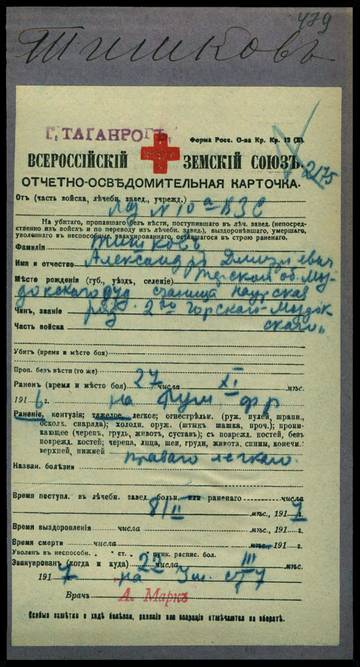 479
Тишковъ
Г. ТАГАНРОГЪ.
Форма Росс. О-ва Кр. Кр. 13 (Д).
ВСЕРОССІЙСКІЙ ЗЕМСКІЙ СОЮЗЪ.
2175
ОТЧЕТНО-ОСВѢДОМИТЕЛЬНАЯ КАРТОЧКА.
Отъ (часть войска, лѣчебн. завед., учрежд.)
10го ВЗС
На убитаго, пропавшаго безъ вѣсти, поступившаго въ лѣч. завед. (непосред-
ственно изъ войскъ и по переводу изъ лѣчебн. завед.), выздоровѣвшаго, умершаго,
уволеннаго въ неспособные, эвакуированнаго, оставшагося въ строю раненаго.
Фамилія Тишковъ
Имя и отчество Александръ
Мѣсто рожденія (губ., уѣздъ, селеніе) Терской об. Мо-
докского станица Наурская
Чинъ, званіе ряд. 2го Горско-Моздок
Часть войска ского
Убитъ (время и мѣсто боя)
Проп. безъ вѣсти (то же)
Раненъ (время и мѣсто боя) 27 числа XI мѣс.
191 6 г. на Рум фр
Раненіе, контузія; тяжелое, легкое; огнестрѣльн. (руж. пулей, шрапн.,
оскол. снаряда); холодн. оруж. (штык. шашка, проч.); прони-
кающее (черепъ, грудь, животъ, суставъ); съ поврежд. костей, безъ
поврежд. костей; черепа, лица, шеи, груди, живота, спины, конечн.:
верхней, нижней праваго легкаго.
Назван. болѣзни
Время поступл. въ лѣчебн. завед. больн. или раненаго числа
8/II мѣс., 191 7
Время выздоровленія числа мѣс., 191
Время смерти числа мѣс., 191
Уволенъ въ неспособн. ст. распис. бол.
Эвакуированъ (когда и куда) 22 числа III мѣс.
191 7 на
Врачъ А. Маркъ
Особыя замѣтки о ходѣ болѣзни, раненія или операціи отмѣчаются на оборотѣ.